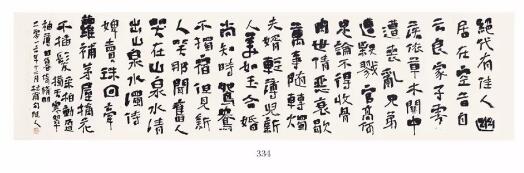 絕代有佳人幽
居在空谷自
云良家子零
落依草木關中
遭喪亂兄弟
遭殺戮官高何
足論不得收骨
肉世情惡衰歇
萬事隨轉燭
夫婿輕薄兒新
人美如玉合婚
尚知時鴛鴦
不獨宿但見新
人笑那聞舊人
哭在山泉水清
出山泉水濁侍
婢賣珠回牽
蘿補茅屋摘花
不插髮采柏動盈
掬天寒翠
袖薄日暮倚修竹
二零一三年十二月
334